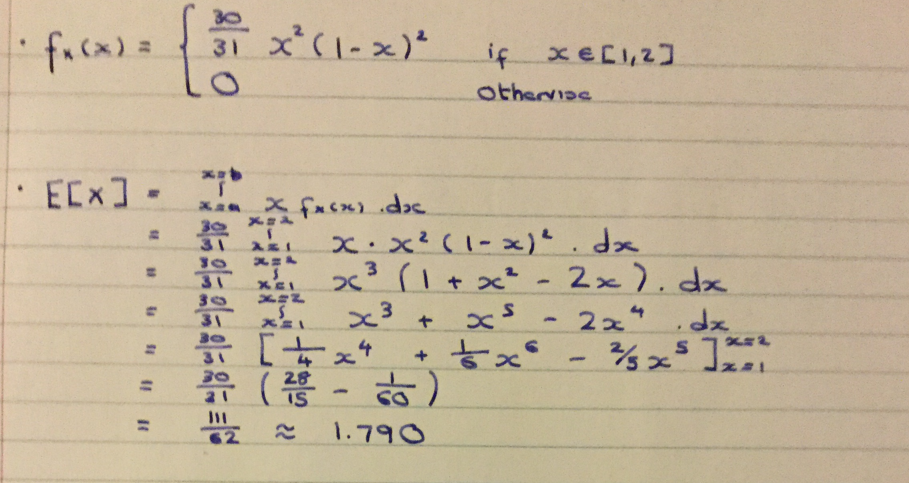 · fx(x) = { 30/31 x²(1-x)² if x ∈ [1,2]
0 otherwise
· E[X] = ∫ x=a x=b x fx(x) .dx
= 30/31 ∫ x=1 x=2 x · x²(1-x)² . dx
= 30/31 ∫ x=1 x=2 x³ (1 + x² - 2x) . dx
= 30/31 ∫ x=1 x=2 x³ + x⁵ - 2x⁴ .dx
= 30/31 [ 1/4 x⁴ + 1/6 x⁶ - 2/5 x⁵ ] x=2 x=1
= 30/31 ( 28/15 - 1/60 )
= 111/62 ≈ 1.790